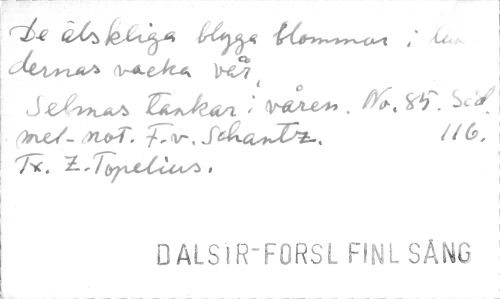 De älskliga blyga blommor i lun
dernas vackra vår,
Selmas tankar i våren. No. 85. Sid.
mel-not. F. v. Schantz. 116.
Tx. Z. Topelius.
DALSIR-FORSL FINL SÅNG